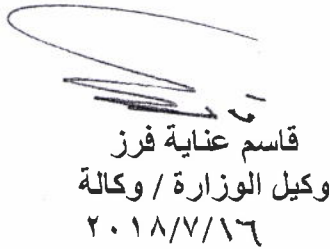 قاسم عناية فرز
وكيل الوزارة / وكالة
٢٠١٨/٧/١٦